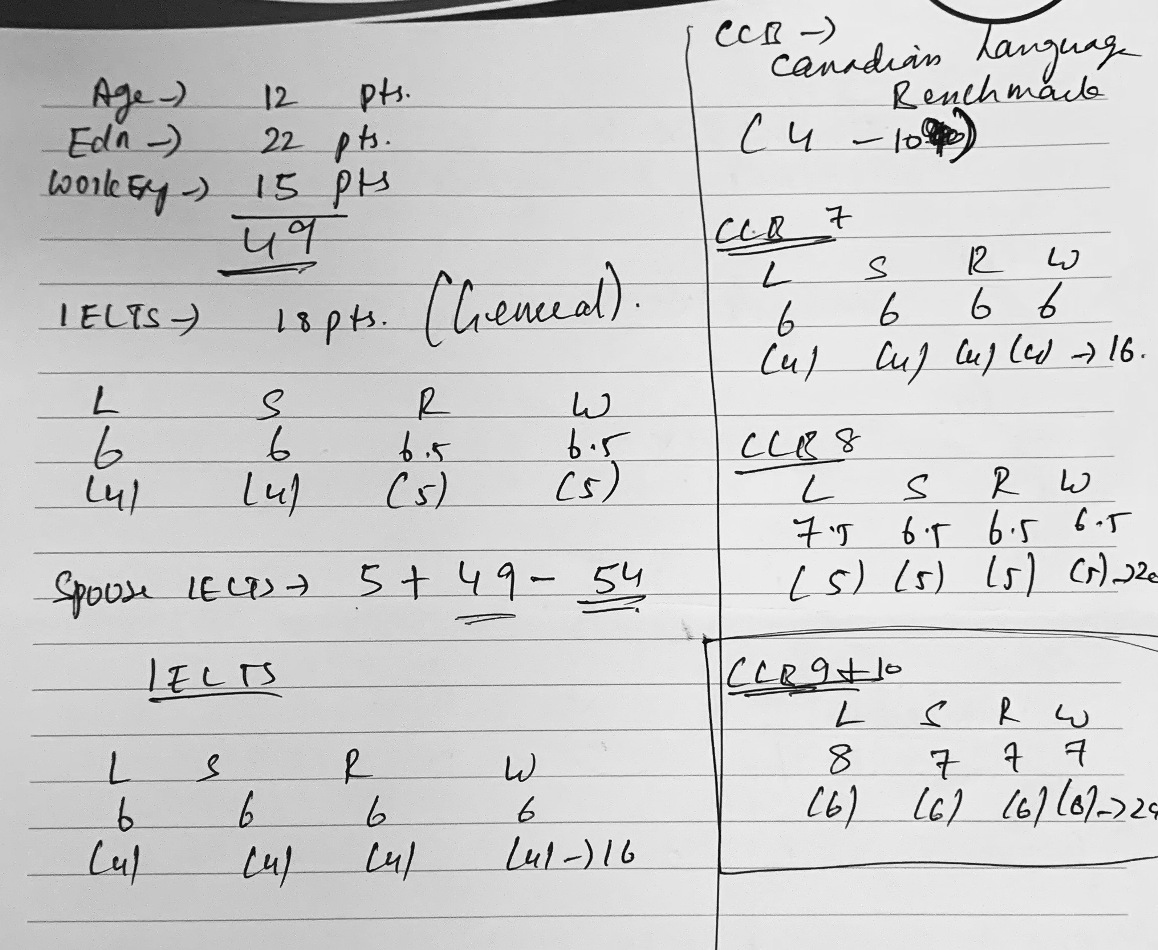 Age → 12 pts.
Edn → 22 pts.
Work Exp → 15 pts
49
IELTS → 18 pts. (General).
L S R W
6 6 6.5 6.5
(4) (4) (5) (5)
Spouse IELTS → 5 + 49 - 54
IELTS
L S R W
6 6 6 6
(4) (4) (4) (4) → 16
CLB →
Canadian Language
Benchmark
(4 - 10)
CLB 7
L S R W
6 6 6 6
(4) (4) (4) (4) → 16.
CLB 8
L S R W
7.5 6.5 6.5 6.5
(5) (5) (5) (5) → 20
CLB 9 + 10
L S R W
8 7 7 7
(6) (6) (6) (6) → 24